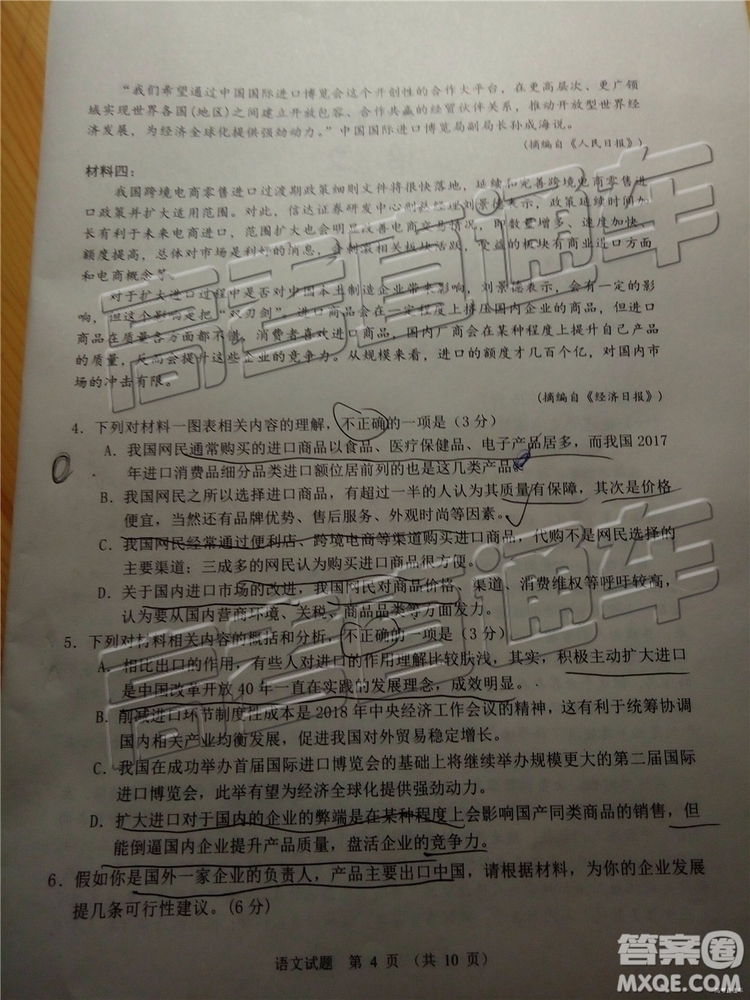 “我们希望通过中国国际进口博览会这个开创性的合作大平台，在更高层次、更广领
域实现世界各国(地区)之间建立开放包容、合作共赢的经贸伙伴关系，推动开放型世界经
济发展，为经济全球化提供强劲动力。”中国国际进口博览局副局长孙成海说。
(摘编自《人民日报》)
材料四：
我国跨境电商零售进口过渡期政策细则文件将很快落地，延续和完善跨境电商零售进
口政策并扩大适用范围。对此，信达证券研发中心副总经理刘景德表示，政策延续时间加
长有利于未来电商进口，范围扩大也会明显改善电商交易情况，即数量增多、速度加快、
额度提高，总体对市场是利好的消息，会刺激相关板块活跃，受益的板块有商业进口方面
和电商概念等。
对于扩大进口过程中是否对中国本土制造企业带来影响，刘景德表示，会有一定的影
响，但这个影响是把“双刃剑”。进口商品会在一定程度上挤压国内企业的商品，但进口
商品在质量各方面都不差，消费者喜欢进口商品，国内厂商会在某种程度上提升自己产品
的质量，反而会提升这些企业的竞争力。从规模来看，进口的额度才几百个亿，对国内市
场的冲击有限。
(摘编自《经济日报》)
4．下列对材料一图表相关内容的理解，不正确的一项是(3 分)
A．我国网民通常购买的进口商品以食品、医疗保健品、电子产品居多，而我国 2017
年进口消费品细分品类进口额位居前列的也是这几类产品。
B．我国网民之所以选择进口商品，有超过一半的人认为其质量有保障，其次是价格
便宜，当然还有品牌优势、售后服务、外观时尚等因素。
C．我国网民经常通过便利店、跨境电商等渠道购买进口商品，代购不是网民选择的
主要渠道；三成多的网民认为购买进口商品很方便。
D．关于国内进口市场的改进，我国网民对商品价格、渠道、消费维权等呼吁较高，
认为要从国内营商环境、关税、商品品类等方面发力。
5．下列对材料相关内容的概括和分析，不正确的一项是(3 分)
A．相比出口的作用，有些人对进口的作用理解比较肤浅，其实，积极主动扩大进口
是中国改革开放 40 年一直在实践的发展理念，成效明显。
B．削减进口环节制度性成本是 2018 年中央经济工作会议的精神，这有利于统筹协调
国内相关产业均衡发展，促进我国对外贸易稳定增长。
C．我国在成功举办首届国际进口博览会的基础上将继续举办规模更大的第二届国际
进口博览会，此举为经济全球化提供强劲动力。
D．扩大进口对于国内的企业的弊端是在某种程度上会影响国产同类商品的销售，但
能倒逼国内企业提升产品质量，盘活企业的竞争力。
6．假如你是国外一家企业的负责人，产品主要出口中国，请根据材料，为你的企业发展
提几条可行性建议。(6 分)
语文试题 第 4 页 (共 10 页)
高考直通车
高考直通车
答案圈
MXQE.COM